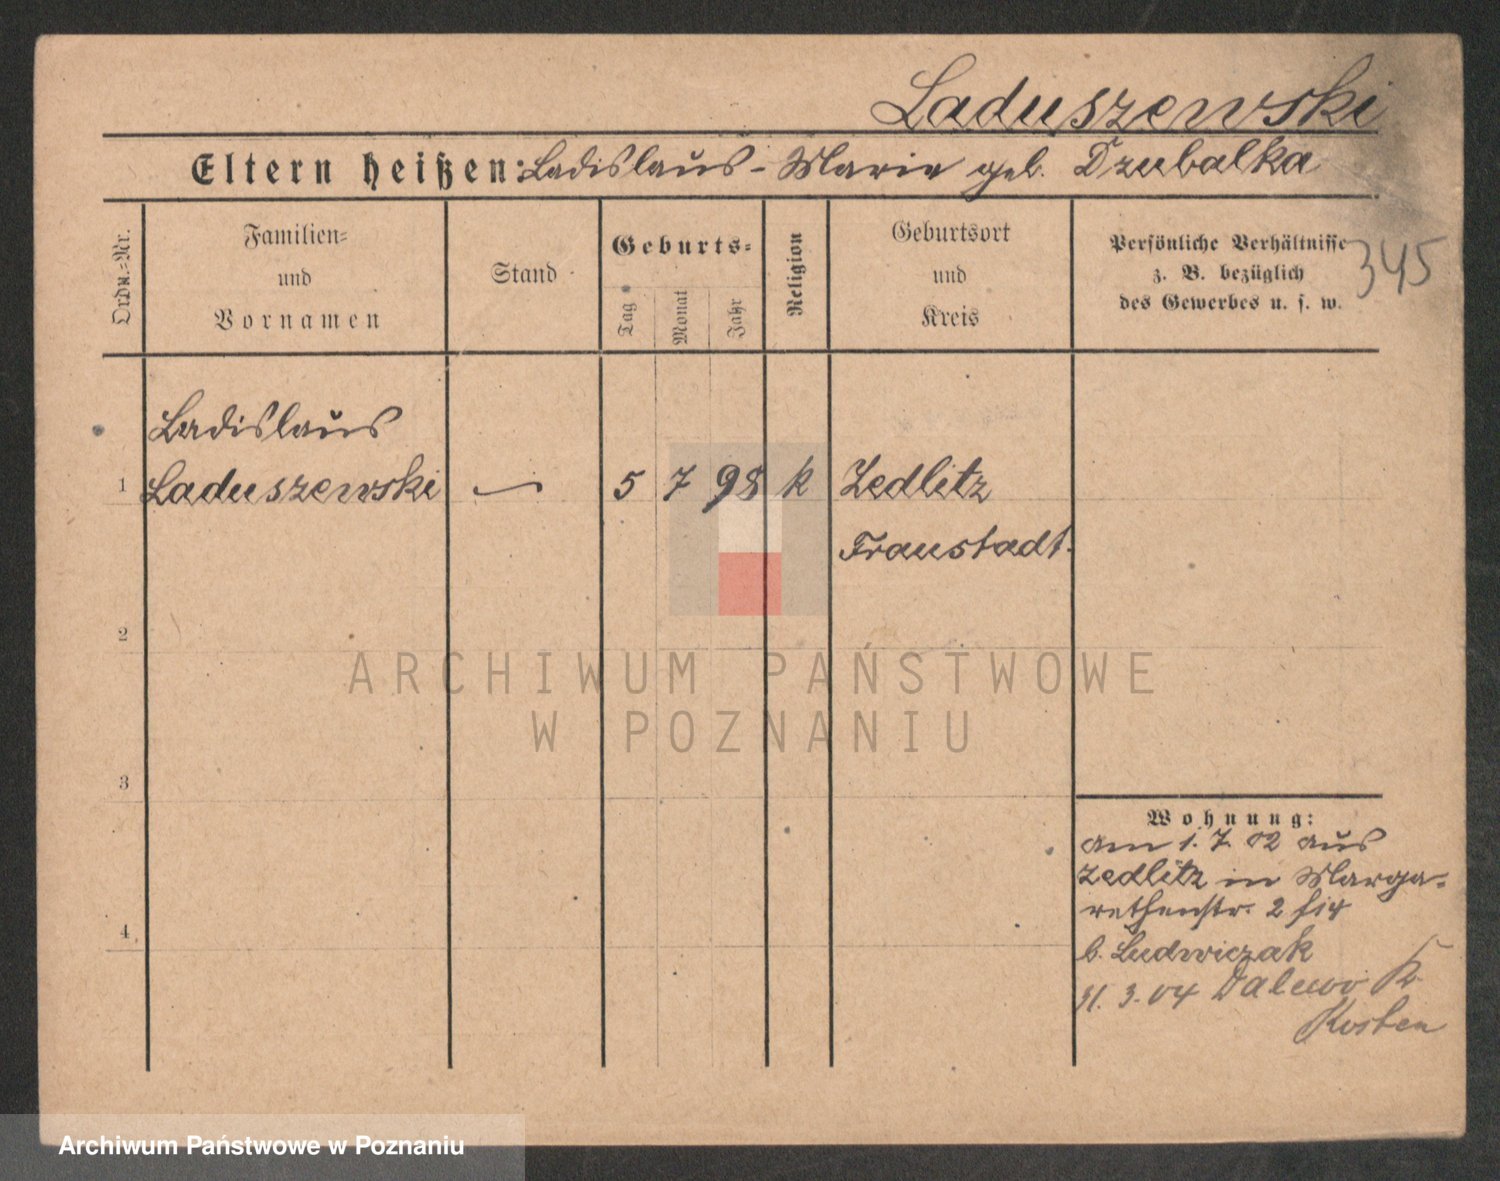 Laduszewski
Eltern heißen: Ladislaus - Marie geb. Dzubalka
345
Ordn.-Nr.
Familien-
und
Vornamen
Stand
Geburts-
Tag
Monat
Jahr
Religion
Geburtsort
und
Kreis
Persönliche Verhältnisse
z. B. bezüglich
des Gewerbes u. s. w.
Ladislaus
1 Laduszewski — 5 7 98 k Zedlitz
Fraustadt.
2
3
4
ARCHIWUM PAŃSTWOWE
W POZNANIU
Wohnung:
am 1. 7. 02 aus
Zedlitz in Marga-
rethenstr. 2
b. Ludwiczak
31. 3. 04 Dalewo K.
Kosten
Archiwum Państwowe w Poznaniu